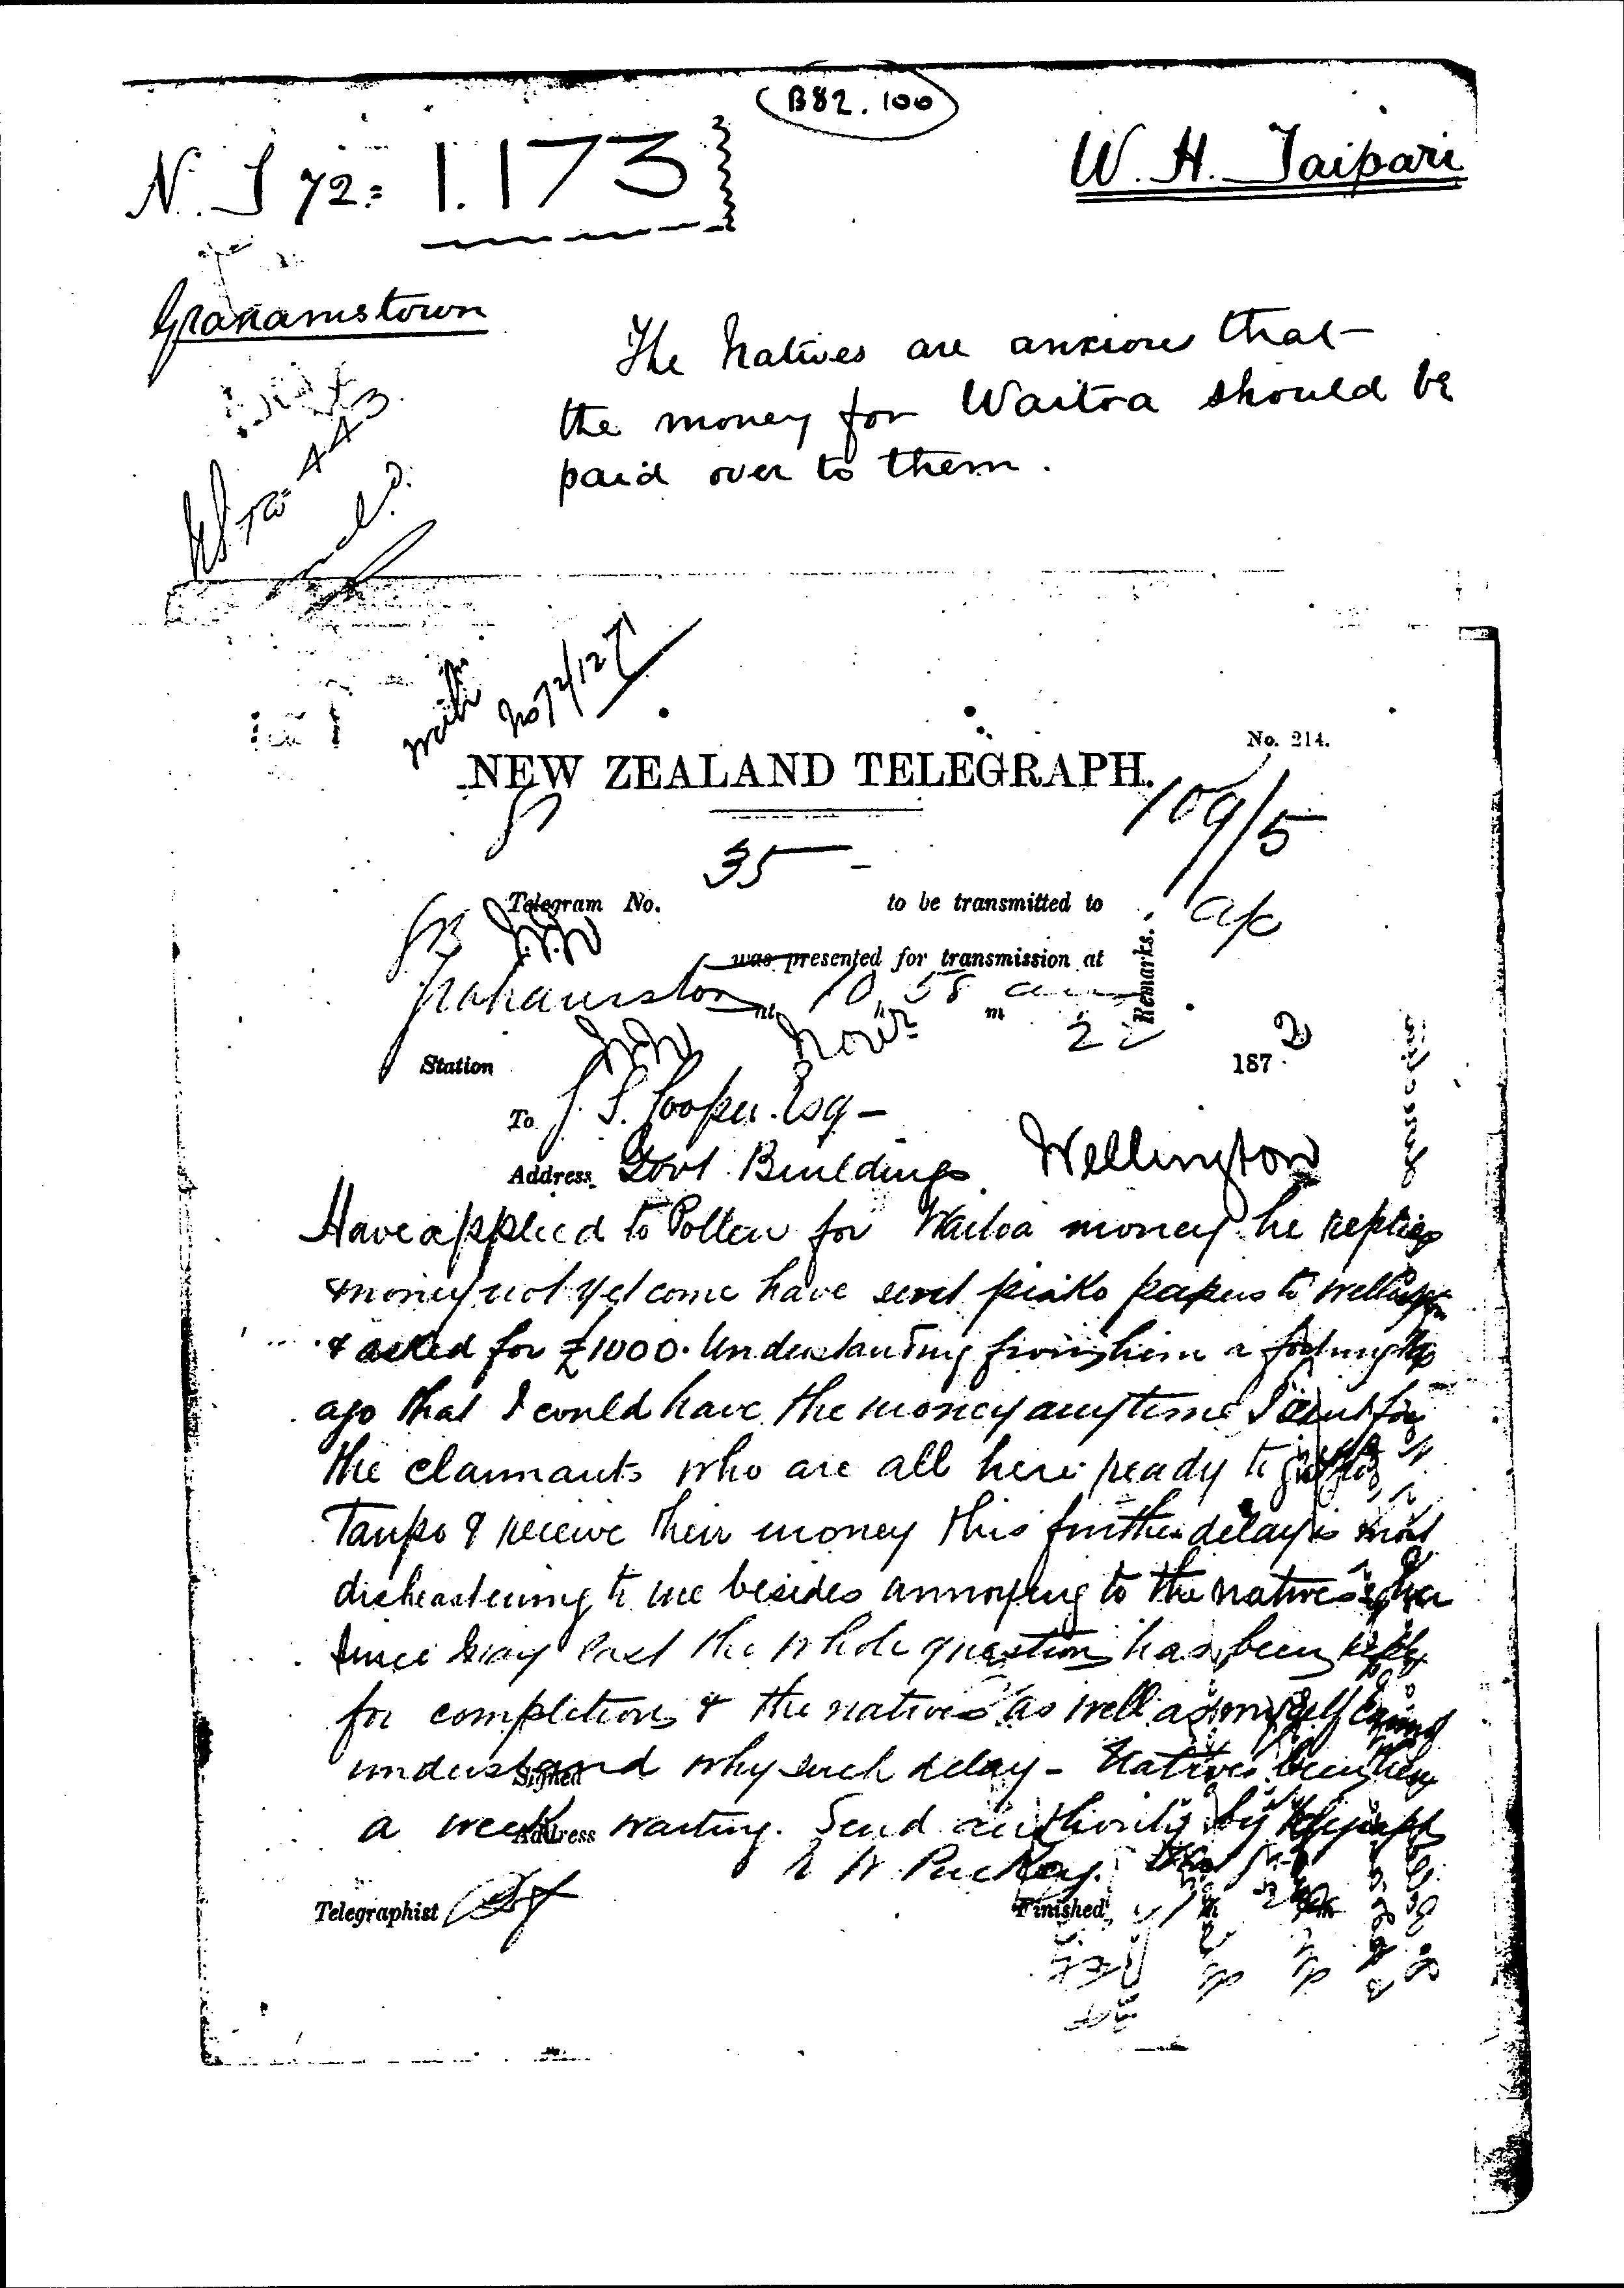 B82.100
N. J 72: 1.173
W. H. Taipari
Grahamstown
The Natives are anxious that
the money for Waitoa should be
paid over to them.
with
No 72/1271
No. 214.
NEW ZEALAND TELEGRAPH.
109/5
35
Telegram No. to be transmitted to
was presented for transmission at
Remarks.
Grahamston 10 h 58 m am
Nov 22 1872
Station
To J. S. Cooper. Esq -
Address Govt Buildings Wellington
Have applied to Pollen for Waitoa money he replies
money not yet come have sent piako papers to wellington
& asked for £1000. Understanding from him a fortnight
ago that I could have the money anytime I sent for
the claimants who are all here ready to go to
Taupo & receive their money this further delay is most
disheartening to me besides annoying to the natives
since May last the whole question has been
for completion & the natives as well as myself cannot
understand why such delay - Natives been here
Signed
a week waiting. Send authority by telegraph
Address
E W Puckey.
Telegraphist
Finished